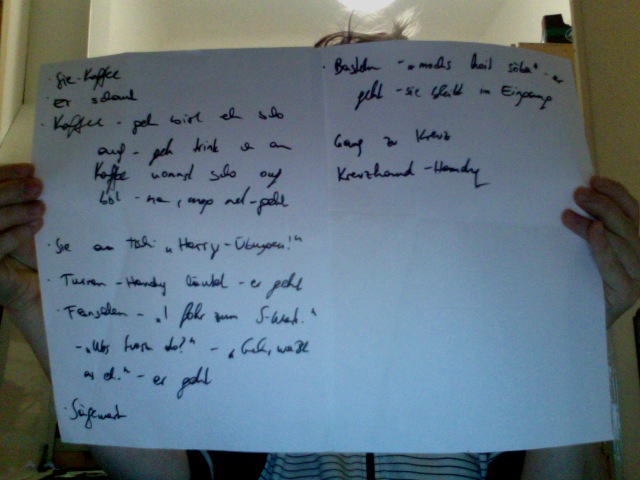 · Sie - Kaffee
· er schaut
· Kaffee - geh wirst eh scho
auf - geh trink ma an
Kaffee wannst scho auf
bist - na, mog net - geht
· Sie am Tisch "Harry-
· Turnen - Handy läutet - er geht
· Fernsehen - "I fohr zum
- "Wos host do?" - "Geh, waßt
as eh." - er geht
· Sägewerk
· Basteln - "mochs hoit söba" - er
geht - sie bleibt im Eingang
Gang zu Kreuz
Handy